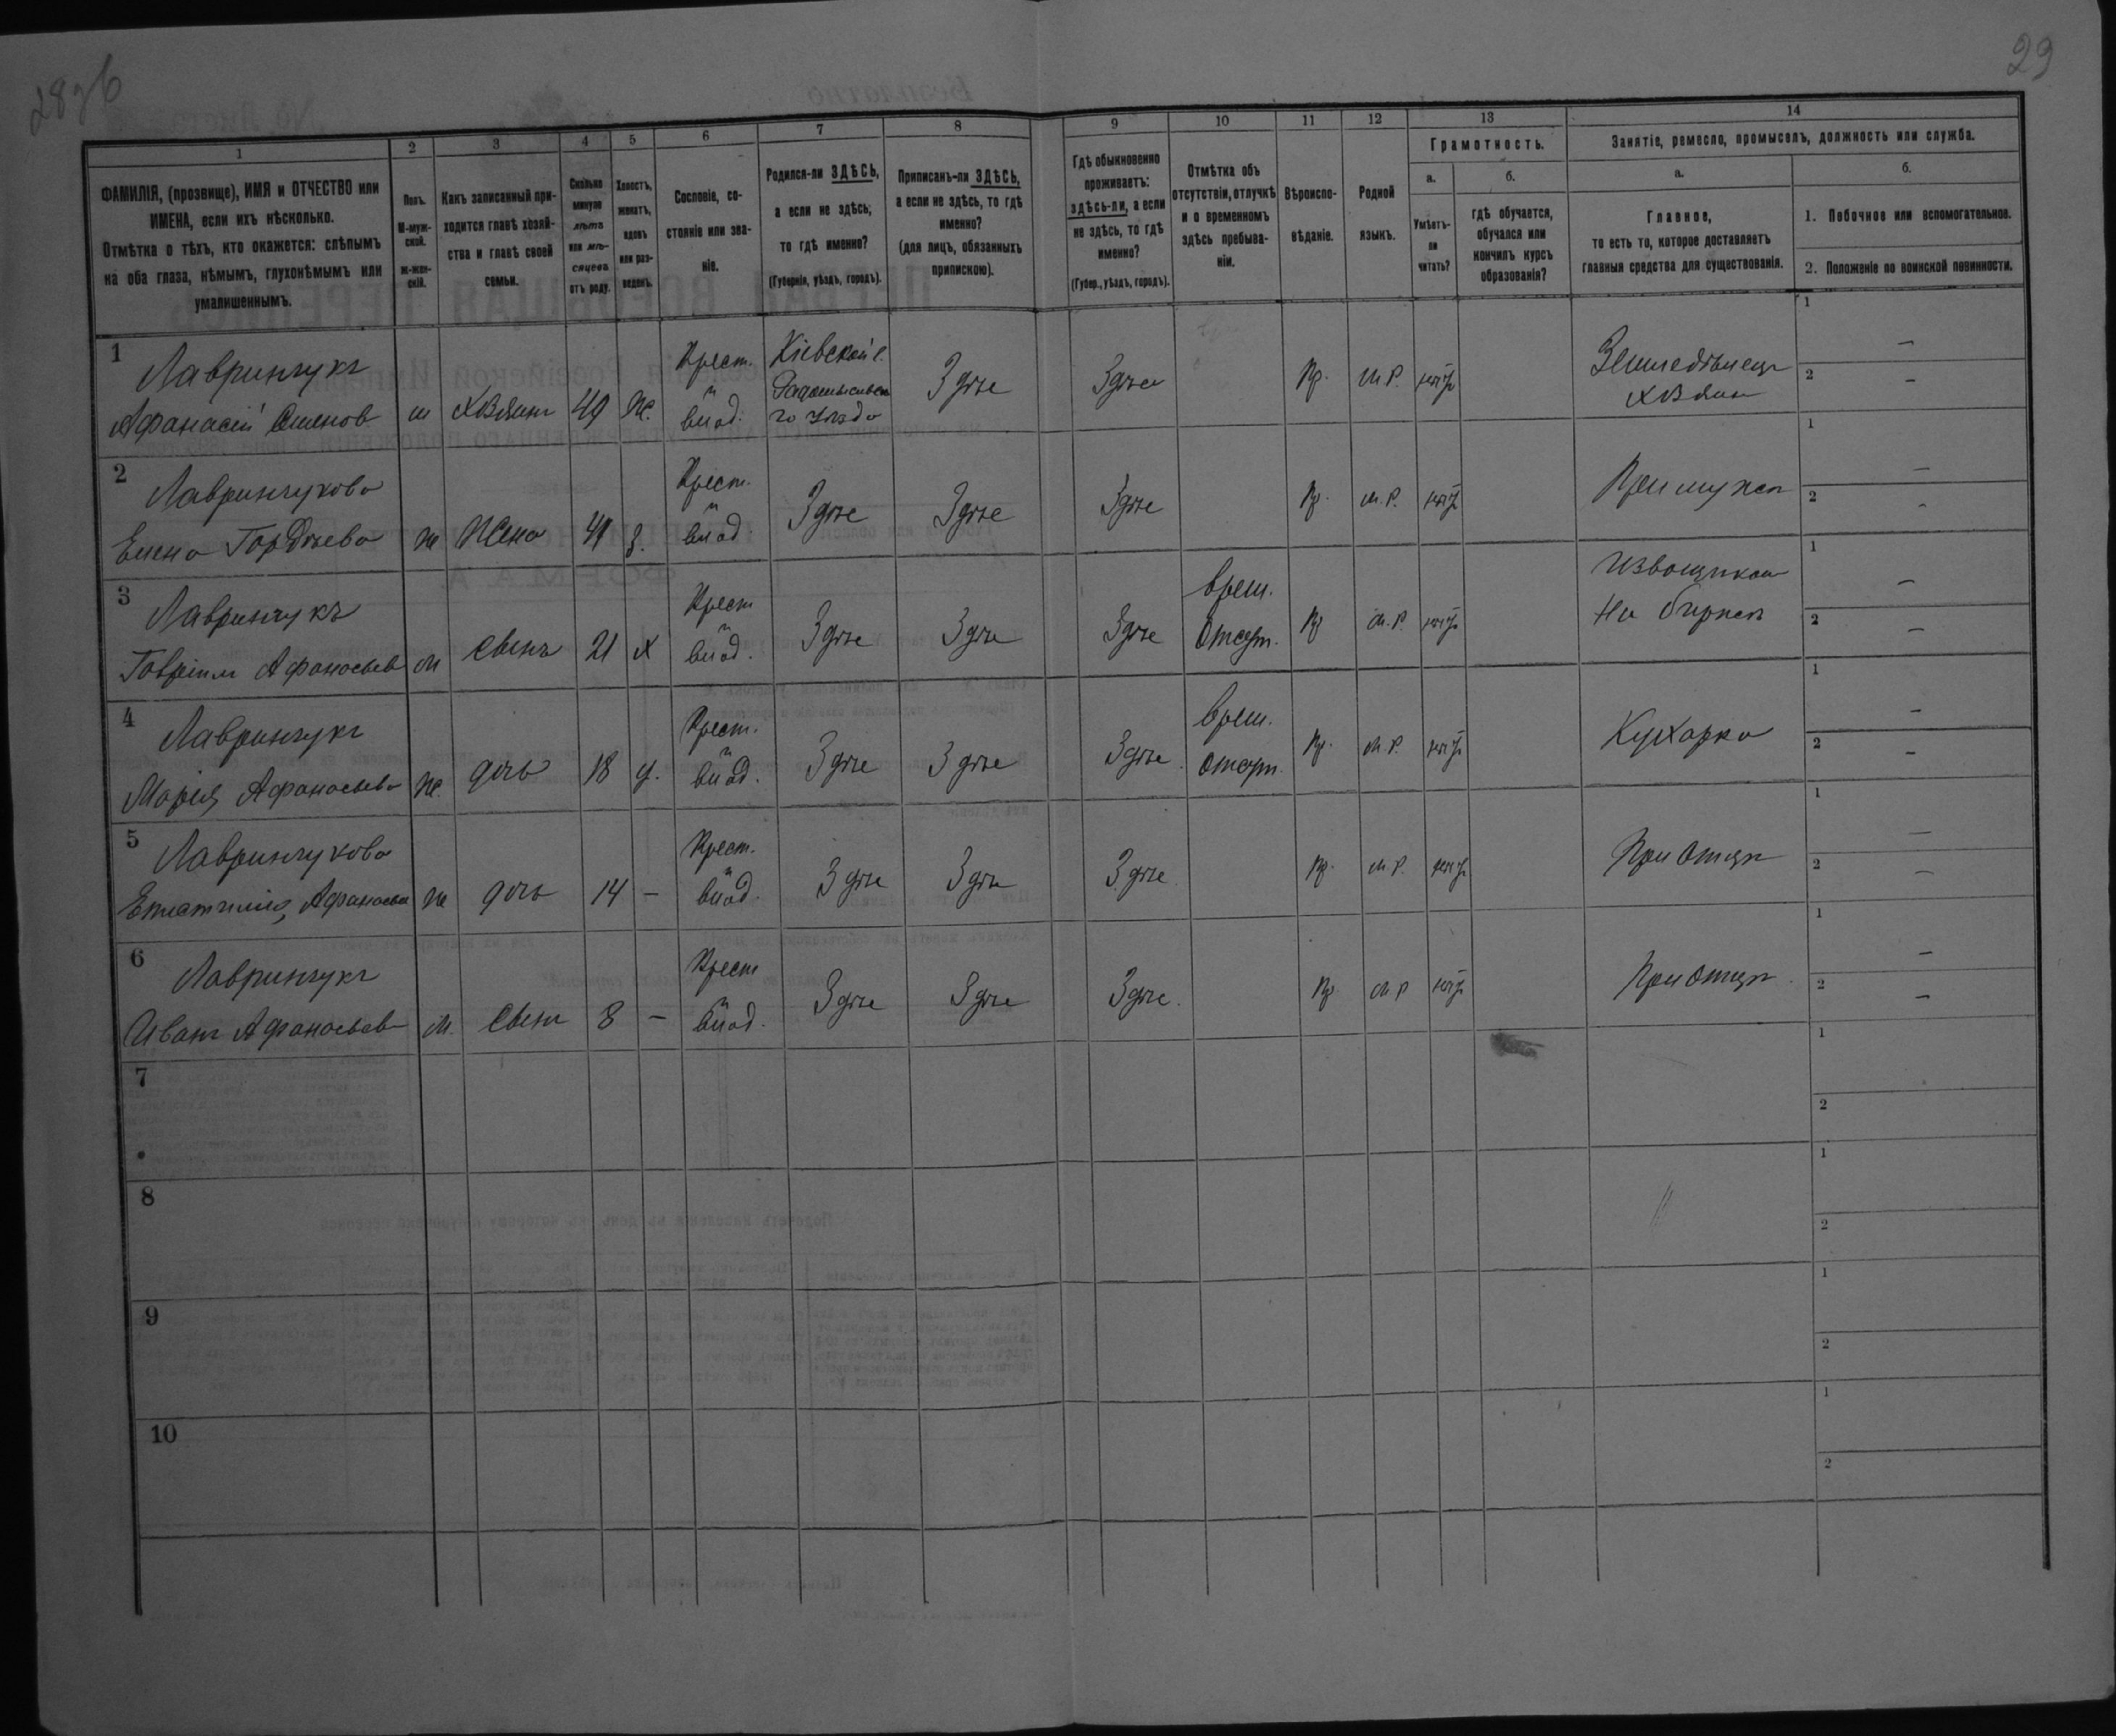 28 об
29
1
2
3
4
5
6
7
8
9
10
11
12
13
14
ФАМИЛІЯ, (прозвище), ИМЯ и ОТЧЕСТВО или
ИМЕНА, если ихъ нѣсколько.
Отмѣтка о тѣхъ, кто окажется: слѣпымъ
на оба глаза, нѣмымъ, глухонѣмымъ или
умалишеннымъ.
Полъ.
М-муж-
ской.
ж-жен-
скій.
Какъ записанный при-
ходится главѣ хозяй-
ства и главѣ своей
семьи.
Сколько
минуло
лѣтъ
или мѣ-
сяцевъ
отъ роду.
Холостъ,
женатъ,
вдовъ
или раз-
веденъ.
Сословіе, со-
стояніе или зва-
ніе.
Родился-ли ЗДѢСЬ,
а если не здѣсь,
то гдѣ именно?
(Губернія, уѣздъ, городъ).
Приписанъ-ли ЗДѢСЬ,
а если не здѣсь, то гдѣ
именно?
(для лицъ, обязанныхъ
припискою).
Гдѣ обыкновенно
проживаетъ:
здѣсь-ли, а если
не здѣсь, то гдѣ
именно?
(Губер., уѣздъ, городъ).
Отмѣтка объ
отсутствіи, отлучкѣ
и о временномъ
здѣсь пребыва-
ніи.
Вѣроиспо-
вѣданіе.
Родной
языкъ.
Грамотность.
а.
Умѣетъ-
ли
читать?
б.
гдѣ обучается,
обучался или
кончилъ курсъ
образованія?
Занятіе, ремесло, промыселъ, должность или служба.
а.
Главное,
то есть то, которое доставляетъ
главныя средства для существованія.
б.
1. Побочное или вспомогательное.
2. Положеніе по воинской повинности.
1
Лавринчукъ
Афанасій Семенов
м
хозяинъ
49
ж.
Крест.
и
влад.
Кіевской г.
Радомысльска
го уѣзда
Здѣсе
Здѣсе
Пр.
м.р.
нѣтъ
Земледѣлецъ
хозяин
1 —
2 —
2
Лавринчукова
Елена Гордѣева
ж
жена
41
з.
Крест.
и
влад
Здѣсе
Здѣсе
Здѣсе
Пр.
м.р.
нѣтъ
При мужѣ
1 —
2 -
3
Лавринчукъ
Гавріил Афанасьев
м
сынъ
21
х
Крест
и
влад.
Здѣсе
Здѣсе
Здѣсе
врем.
отсут.
Пр
м.р.
нѣтъ
Извощиком
на биржѣ
1 —
2 —
4
Лавринчукъ
Марія Афанасьева
ж.
дочь
18
д.
Крест.
и
влад.
Здѣсе
Здѣсе
Здѣсе
врем.
отсут.
Пр.
м.р.
нѣтъ
Кухарка
1 —
2 —
5
Лавринчукова
Афанасьева
ж
дочь
14
—
Крест.
и
влад.
Здѣсе
Здѣсе
Здѣсе
Пр.
м.р.
нѣтъ
При отцѣ
1 —
2 —
6
Лавринчукъ
Иванъ Афанасьев
м.
сынъ
8
—
Крест
и
влад.
Здѣсе
Здѣсе
Здѣсе.
Пр.
м р
нѣтъ
При отцѣ
1 —
2 —
7
1
2
8
1
2
9
1
2
10
1
2